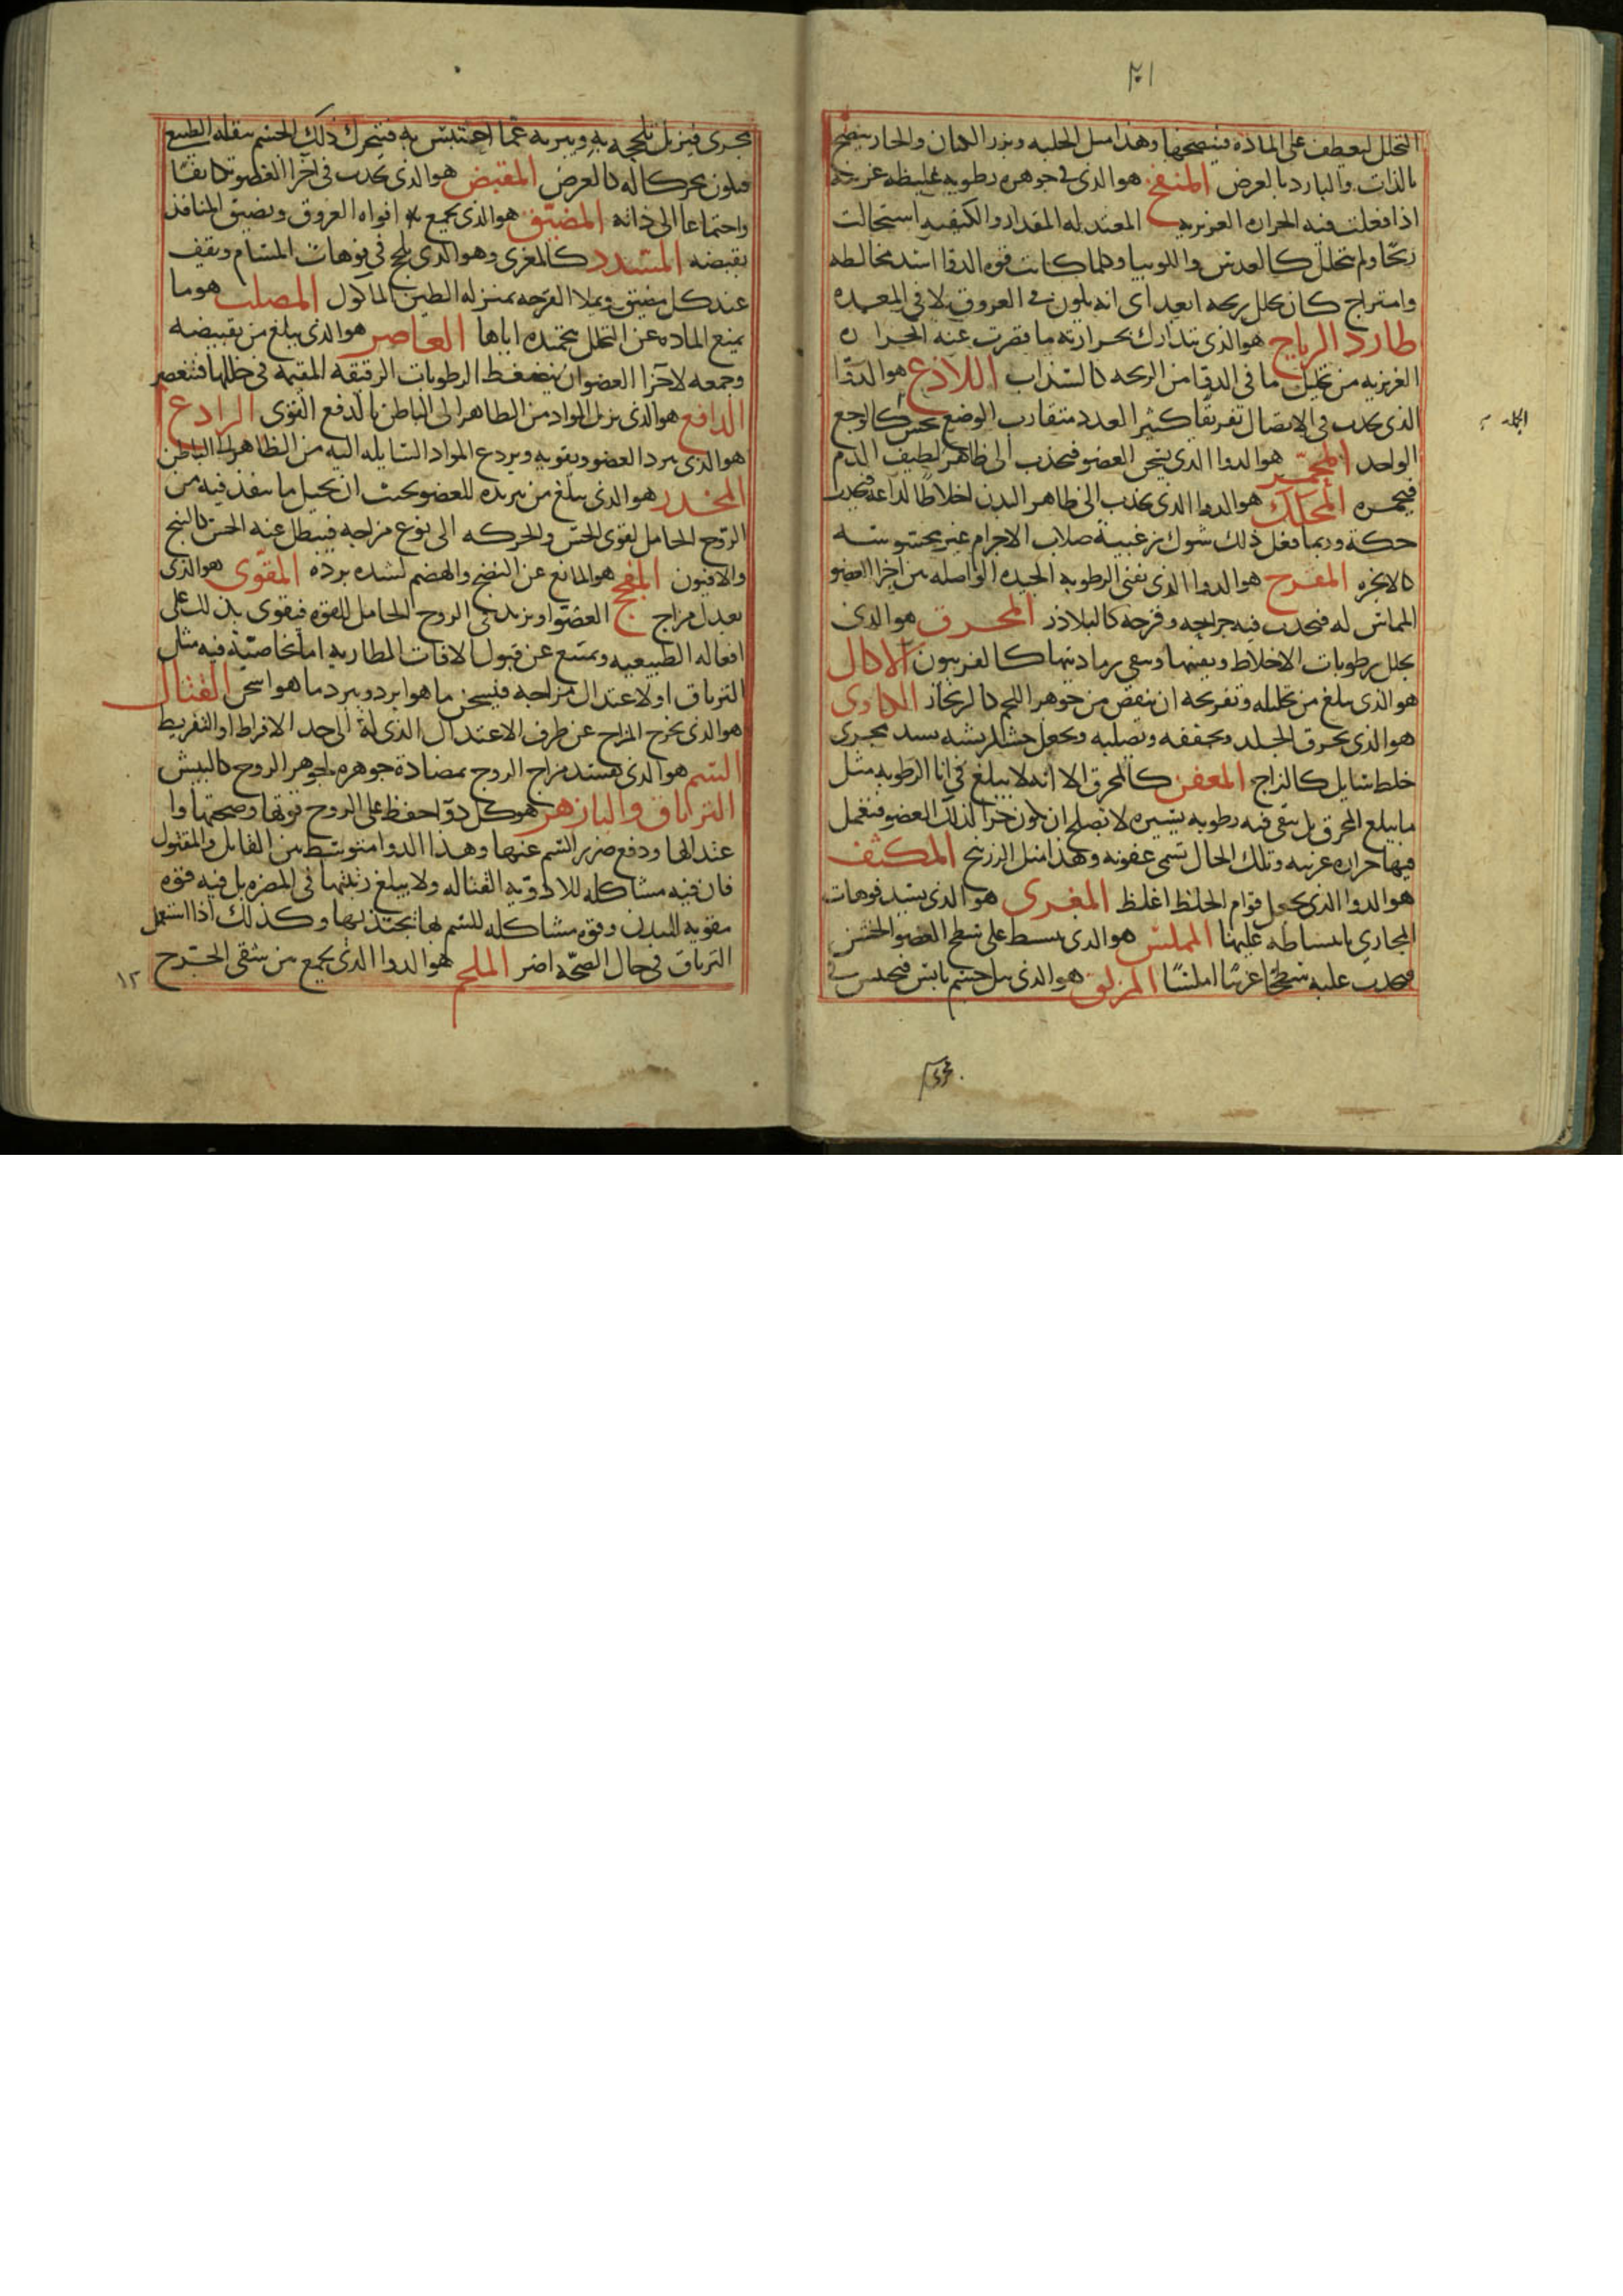 التحلل ليعطف على المادة فينضجها وهذا مثل الحلبه وبزر الكتان والحار ينضج
بالذات والبارد بالعرض المنفخ هو الذى فى جوهره رطوبه غليظه غريبه
اذا فعلت فيه الحراره الغريزيه المعتدله المقدار والكيفيه استحالت
ريحا ولم تتحلل كالعدس واللوبيا وكلما كانت قوه الدوا اشد مخالطه
وامتزاج كان تحلل ريحه ابعد اى انه يكون فى العروق لا فى المعده
طارد الرياح هو الذى يتدارك بحرارته ما قصرت عنه الحراره
الغريزيه من تحليل ما فى الدوا من الريحه كالسذاب اللاذع هو الدوا
الذى يحدث فى الاتصال تفرقا كثير العدد متقارب الوضع يحس كالوجع
الواحد المحمر هو الدوا الذى يسخن العضو فيجذب الى ظاهر لطيف الدم
فيحمره المحكك هو الدوا الذى يجذب الى ظاهر البدن اخلاطا لذاعه فيحدث
حكة وربما فعل ذلك شوك زغبية صلاب الاجرام غير محسوسته
كالانجره المقرح هو الدوا الذى يفنى الرطوبه الجيده الواصله بين اجزا العضو
المماس له فيحدث فيه جراحه وقرحه كالبلاذر المحرق هو الذى
يحلل رطوبات الاخلاط ويفنيها ويبقى رماديتها كالفربيون الاكال
هو الذى يبلغ من تحليله وتقريحه ان ينقص من جوهر اللحم كالزنجار الكاوى
هو الذى يحرق الجلد ويجففه ويصلبه ويجعل خشكريشه يسد مجرى
خلط سايل كالزاج المعفن كالمحرق الا انه لا يبلغ فى افنا الرطوبه مثل
ما يبلغ المحرق بل يبقى فيه رطوبه يسيره لا تصلح ان تكون جزا لذلك العضو فتعمل
فيها حراره غريبه وتلك الحال تسمى عفونه وهذا مثل الزرنيخ المكثف
هو الدوا الذى يجعل قوام الخلط اغلظ المغرى هو الذى يسد فوهات
المجارى بانبساطه عليها المملس هو الذى يبسط على سطح العضو الخشن
فيحدث عليه سطحا غريبا املسا المزلق هو الذى يبل جسم يابس فيحتبس فى
مجرى
مجرى فيزيل تلججه به ويبريه عما احتبس به فيتحرك ذلك الجسم بثقله الطبيعى
فيكون محركا له بالعرض المقبض هو الذى يحدث فى اجزا العضو تكاثفا
واجتماعا الى ذاته المضيق هو الذى يجمع افواه العروق ويضيق المنافذ
بقبضه المسدد كالمغرى وهو الذى يلج فى فوهات المسام ويقف
عند كل مضيق ويملا الفرجه بمنزله الطين الماكول المصلب هو ما
يمنع الماده عن التحلل بتجميده اياها العاصر هو الذى يبلغ من تقبيضه
وجمعه لاجزا العضو ان ينضغط الرطوبات الرقيقه المقيمه فى خللها فتنعصر
الدافع هو الذى يزيل المواد من الظاهر الى الباطن بالدفع القوى الرادع
هو الذى يبرد العضو ويقويه ويردع المواد السايله اليه من الظاهر الى الباطن
المخدر هو الذى يبلغ من تبريده للعضو بحيث ان يحيل ما ينفذ فيه من
الروح الحامل لقوى الحس والحركه الى نوع مزاجه فيبطل عنه الحس كالبنج
والافيون المفجج هو المانع عن النضج والهضم لشده برده المقوى هو الذى
يعدل مزاج العضو او يزيد فى الروح الحامل للقوه فيقوى بذلك على
افعاله الطبيعيه ويمتنع عن قبول الافات الطاريه اما بخاصية فيه مثل
الترياق او لاعتدال مزاجه فيسخن ما هو ابرد ويبرد ما هو اسخن القتال
هو الذى يخرج المزاج عن طرف الاعتدال الذى له الى حد الافراط او التفريط
السم هو الذى يفسد مزاج الروح بمضادة جوهره لجوهر الروح كالبيش
الترياق والبازهر هو كل دوا حفظ على الروح قوتها وصحتها وا
عتدالها ودفع ضرر السم عنها وهذا الدوا متوسط بين القاتل والمقتول
فان فيه مشاكله للادويه القتاله ولا يبلغ رتبتها فى المضره بل فيه قوه
مقويه للبدن وقوه مشاكله للسم بها يجتذبها وكذلك اذا استعمل
الترياق فى حال الصحه اضر الملحم هو الدوا الذى يجمع بين شقى الجرح
١٢